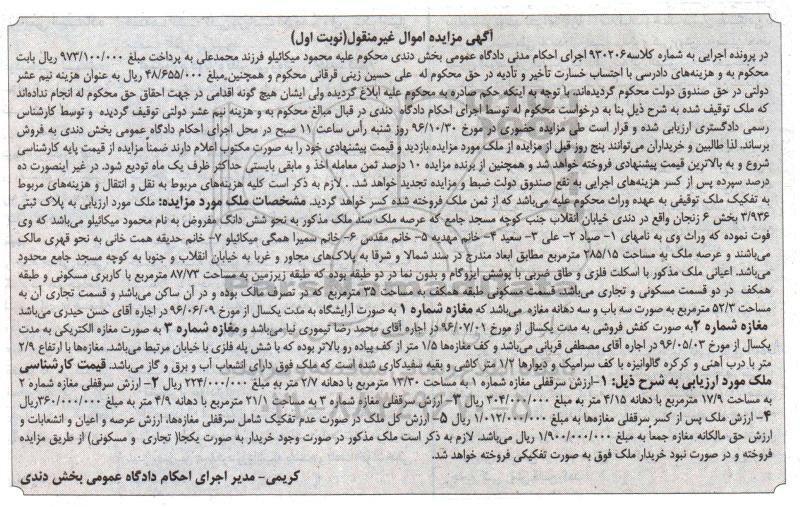 آگهی مزایده اموال غیرمنقول(نوبت اول)
در پرونده اجرایی به شماره کلاسه۹۳۰۲۰۶ اجرای احکام مدنی دادگاه عمومی بخش دندی محکوم علیه محمود میکائیلو فرزند محمدعلی به پرداخت مبلغ ۹۷۳/۱۰۰/۰۰۰ ریال بابت
محکوم به و هزینه‌های دادرسی با احتساب خسارت تأخیر و تأدیه در حق محکوم له علی حسین زینی قرقانی محکوم و همچنین مبلغ ۴۸/۶۵۵/۰۰۰ ریال به عنوان هزینه نیم عشر
دولتی در حق صندوق دولت محکوم گردیده‌اند، با توجه به اینکه حکم صادره به محکوم علیه ابلاغ گردیده ولی ایشان هیچ گونه اقدامی در جهت احقاق حق محکوم له انجام نداده‌اند
که ملک توقیف شده به شرح ذیل بنا به درخواست محکوم له توسط اجرای احکام دادگاه دندی در قبال مبالغ محکوم به و هزینه نیم عشر دولتی توقیف گردیده و توسط کارشناس
رسمی دادگستری ارزیابی شده و قرار است طی مزایده حضوری در مورخ ۹۶/۱۰/۳۰ روز شنبه رأس ساعت ۱۱ صبح در محل اجرای احکام دادگاه عمومی بخش دندی به فروش
برساند. لذا طالبین و خریداران می‌توانند پنج روز قبل از مزایده از ملک مورد مزایده بازدید و قیمت پیشنهادی خود را به صورت مکتوب اعلام دارند ضمناً مزایده از قیمت پایه کارشناسی
شروع و به بالاترین قیمت پیشنهادی فروخته خواهد شد و همچنین از برنده مزایده ۱۰ درصد ثمن معامله اخذ و مابقی بایستی حداکثر ظرف یک ماه تودیع شود. در غیر اینصورت ده
درصد سپرده پس از کسر هزینه‌های اجرایی به نفع صندوق دولت ضبط و مزایده تجدید خواهد شد. . لازم به ذکر است کلیه هزینه‌های مربوط به نقل و انتقال و هزینه‌های مربوط
به تفکیک ملک توقیفی به عهده وراث محکوم علیه می‌باشد که از ثمن ملک فروخته شده کسر خواهد گردید. مشخصات ملک مورد مزایده: ملک مورد ارزیابی به پلاک ثبتی
۳/۹۳۶ بخش ۶ زنجان واقع در دندی خیابان انقلاب جنب کوچه مسجد جامع که عرصه ملک سند ملک مذکور به نحو شش دانگ مفروض به نام محمود میکائیلو می‌باشد که وی
فوت نموده که وراث وی به نامهای ۱- صیاد ۲- علی ۳- سعید ۴- خانم مهدیه ۵- خانم مقدس ۶- خانم سمیرا همگی میکائیلو ۷- خانم حدیقه همت خانی به نحو قهری مالک
می‌باشند و عرصه ملک به مساحت ۲۸۵/۱۵ مترمربع مطابق ابعاد مندرج در سند شمالا و شرقا به پلاک‌های مجاور و غربا به خیابان انقلاب و جنوبا به کوچه مسجد جامع محدود
می‌باشد. اعیانی ملک مذکور با اسکلت فلزی و طاق ضربی با پوشش ایزوگام و بدون نما در دو طبقه بوده که طبقه زیرزمین به مساحت ۸۷/۷۳ مترمربع با کاربری مسکونی و طبقه
همکف در دو قسمت مسکونی و تجاری می‌باشد. قسمت مسکونی طبقه همکف به مساحت ۳۵ مترمربع که در تصرف مالک بوده و در آن ساکن می‌باشد و قسمت تجاری آن به
مساحت ۵۲/۳ مترمربع به صورت سه باب و سه دهانه مغازه می‌باشد که مغازه شماره ۱ به صورت آرایشگاه به مدت یکسال از مورخ ۹۶/۰۶/۰۹ در اجاره آقای حسن حیدری می‌باشد
مغازه شماره ۲به صورت کفش فروشی به مدت یکسال از مورخ ۹۶/۰۷/۰۱ در اجاره آقای محمد رضا تیموری نیا می‌باشد و مغازه شماره ۳ به صورت مغازه الکتریکی به مدت
یکسال از مورخ ۹۶/۰۵/۰۳ در اجاره آقای مصطفی قربانی می‌باشد و کف مغازه‌ها ۱/۵ متر از کف پیاده رو بالاتر بوده که با شش پله فلزی با خیابان مرتبط می‌باشد. مغازه‌ها با ارتفاع ۲/۹
متر با درب آهنی و کرکره گالوانیزه با کف سرامیک و دیوارها ۱/۲ متر کاشی و بقیه سفیدکاری شده است که ملک فوق دارای انشعاب آب و برق و گاز می‌باشد. قیمت کارشناسی
ملک مورد ارزیابی به شرح ذیل: ۱-ارزش سرقفلی مغازه شماره ۱ به مساحت ۱۳/۳۰ مترمربع با دهانه ۲/۷ متر به مبلغ ۲۲۴/۰۰۰/۰۰۰ ریال ۲- ارزش سرقفلی مغازه شماره ۲
به مساحت ۱۷/۹ مترمربع با دهانه ۴/۱۵ متر به مبلغ ۳۰۴/۰۰۰/۰۰۰ ریال ۳- ارزش سرقفلی مغازه شماره ۳ به مساحت ۲۱/۱ مترمربع با دهانه ۴/۹ متر به مبلغ ۳۶۰/۰۰۰/۰۰۰ریال
۴- ارزش ملک پس از کسر سرقفلی مغازه‌ها به مبلغ ۱/۰۱۲/۰۰۰/۰۰۰ ریال ۵- ارزش کل ملک در صورت عدم تفکیک شامل سرقفلی مغازه‌ها، ارزش عرصه و اعیان و انشعابات و
ارزش حق مالکانه مغازه جمعاً به مبلغ ۱/۹۰۰/۰۰۰/۰۰۰ ریال می‌باشد. لازم به ذکر است ملک مذکور در صورت وجود خریدار به صورت یکجا( تجاری و مسکونی) از طریق مزایده
فروخته و در صورت نبود خریدار ملک فوق به صورت تفکیکی فروخته خواهد شد.
کریمی- مدیر اجرای احکام دادگاه عمومی بخش دندی